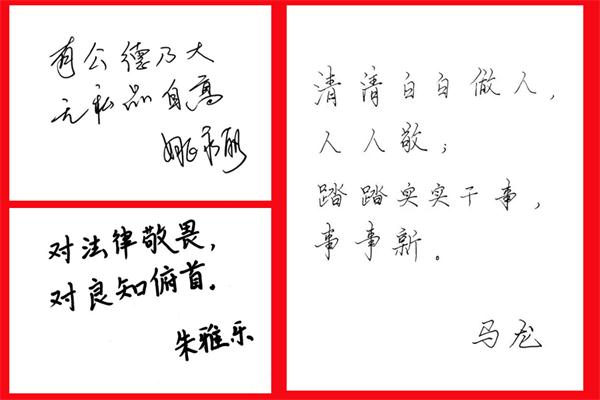 有公德乃大
无私品自高
对法律敬畏，
对良知俯首。
朱雅乐
清清白白做人，
人人敬；
踏踏实实干事，
事事新。
马龙